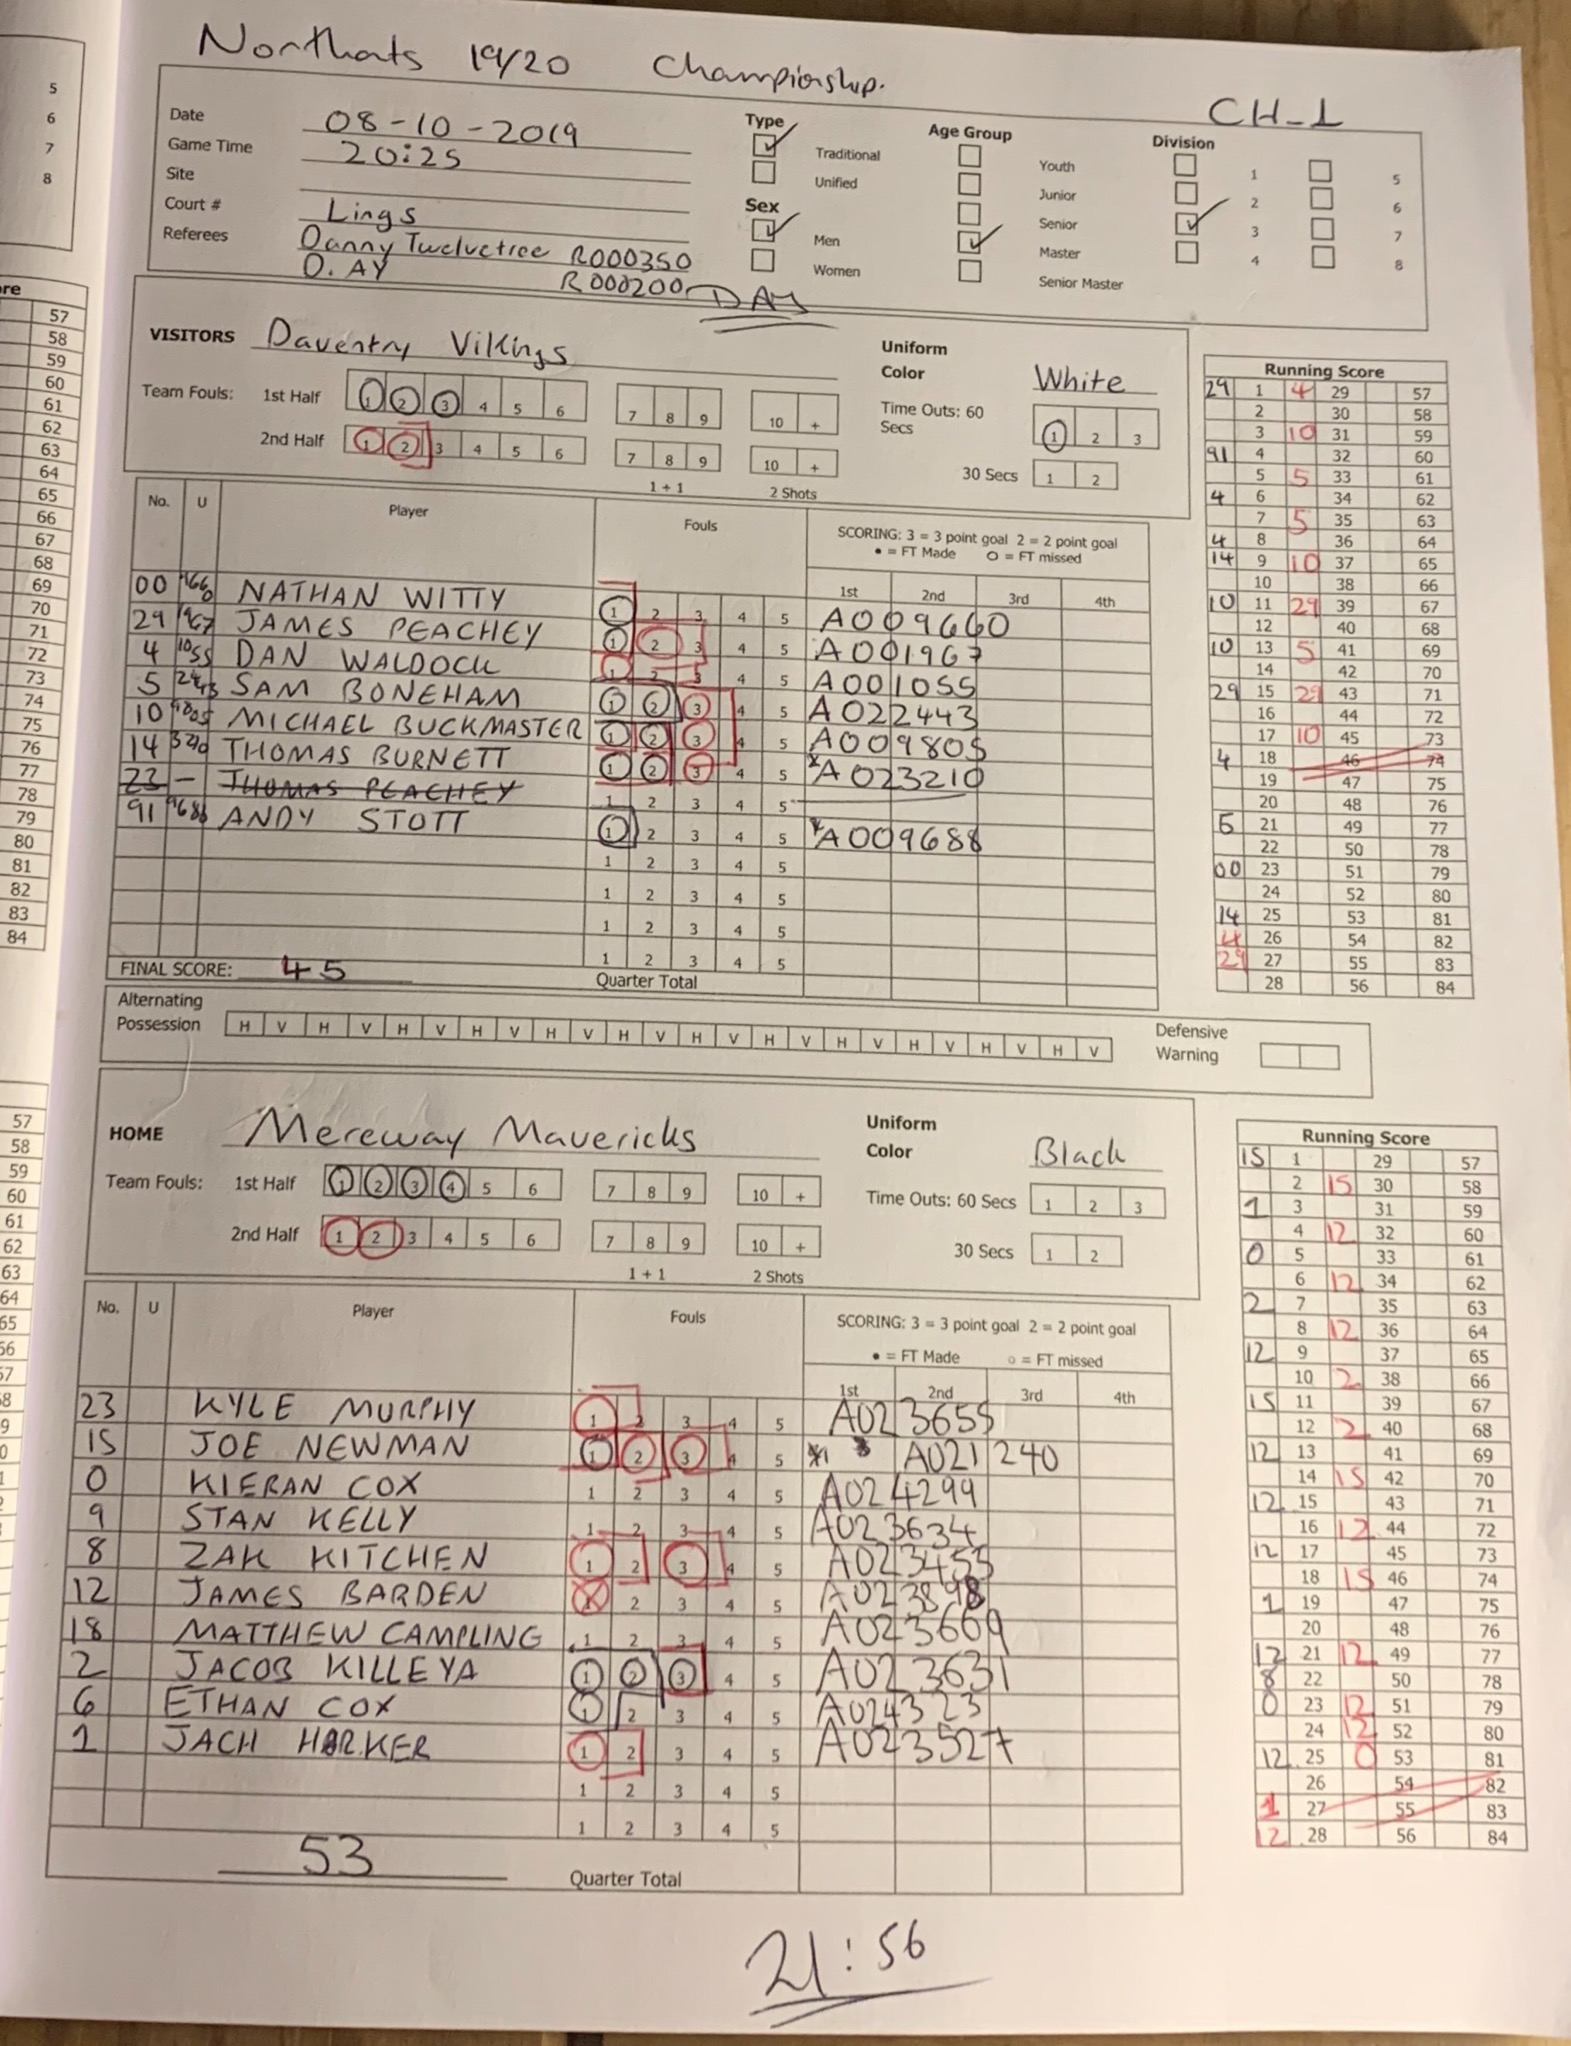 Northants 19/20 Championship.
CH_1
Date 08-10-2019
Game Time 20:25
Site
Court # Lings
Referees Danny Twelvetree R000350
O. AY R000200 DAY
Type
Traditional
Unified
Sex
Men
Women
Age Group
Youth
Junior
Senior
Master
Senior Master
Division
1 5
2 6
3 7
4 8
VISITORS Daventry Vikings
Uniform Color White
Team Fouls: 1st Half 1 2 3 4 5 6 7 8 9 10 +
Time Outs: 60 Secs 1 2 3
2nd Half 1 2 3 4 5 6 7 8 9 10 +
30 Secs 1 2
1 + 1 2 Shots
No. U Player Fouls SCORING: 3 = 3 point goal 2 = 2 point goal
● = FT Made O = FT missed
1st 2nd 3rd 4th
00 NATHAN WITTY 1 2 3 4 5 A009660
29 1967 JAMES PEACHEY 1 2 3 4 5 A001967
4 1055 DAN WALDOCK 1 2 3 4 5 A001055
5 SAM BONEHAM 1 2 3 4 5 A022443
10 MICHAEL BUCKMASTER 1 2 3 4 5 A009805
14 3210 THOMAS BURNETT 1 2 3 4 5 A023210
23 - THOMAS PEACHEY 1 2 3 4 5
91 9688 ANDY STOTT 1 2 3 4 5 A009688
1 2 3 4 5
1 2 3 4 5
1 2 3 4 5
1 2 3 4 5
FINAL SCORE: 45 Quarter Total
Running Score
29 1 4 29 57
2 30 58
3 10 31 59
91 4 32 60
5 5 33 61
4 6 34 62
7 5 35 63
4 8 36 64
14 9 10 37 65
10 38 66
10 11 29 39 67
12 40 68
10 13 5 41 69
14 42 70
29 15 29 43 71
16 44 72
17 10 45 73
4 18 46 74
19 47 75
20 48 76
5 21 49 77
22 50 78
00 23 51 79
24 52 80
14 25 53 81
4 26 54 82
29 27 55 83
28 56 84
Alternating Possession H V H V H V H V H V H V H V H V H V H V H V H V
Defensive Warning
HOME Mereway Mavericks
Uniform Color Black
Team Fouls: 1st Half 1 2 3 4 5 6 7 8 9 10 +
Time Outs: 60 Secs 1 2 3
2nd Half 1 2 3 4 5 6 7 8 9 10 +
30 Secs 1 2
1 + 1 2 Shots
No. U Player Fouls SCORING: 3 = 3 point goal 2 = 2 point goal
● = FT Made o = FT missed
1st 2nd 3rd 4th
23 KYLE MURPHY 1 2 3 4 5 A023655
15 JOE NEWMAN 1 2 3 4 5 A021240
0 KIERAN COX 1 2 3 4 5 A024299
9 STAN KELLY 1 2 3 4 5 A023634
8 ZAK KITCHEN 1 2 3 4 5 A023453
12 JAMES BARDEN 1 2 3 4 5 A023898
18 MATTHEW CAMPLING 1 2 3 4 5 A023609
2 JACOB KILLEYA 1 2 3 4 5 A023631
6 ETHAN COX 1 2 3 4 5 A024323
1 JACH HARKER 1 2 3 4 5 A023527
1 2 3 4 5
1 2 3 4 5
53 Quarter Total
Running Score
15 1 29 57
2 15 30 58
1 3 31 59
4 12 32 60
0 5 33 61
6 12 34 62
2 7 35 63
8 12 36 64
12 9 37 65
10 2 38 66
15 11 39 67
12 2 40 68
12 13 41 69
14 15 42 70
12 15 43 71
16 12 44 72
12 17 45 73
18 15 46 74
1 19 47 75
20 48 76
12 21 12 49 77
8 22 50 78
0 23 12 51 79
24 12 52 80
12 25 0 53 81
26 54 82
1 27 55 83
12 28 56 84
21:56